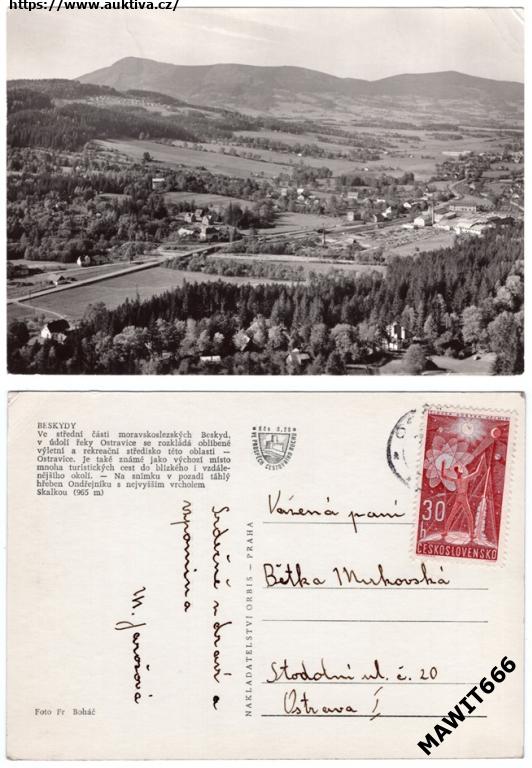 https://www.auktiva.cz/
BESKYDY
Ve střední části moravskoslezských Beskyd,
v údolí řeky Ostravice se rozkládá oblíbené
výletní a rekreační středisko této oblasti —
Ostravice. Je také známé jako výchozí místo
mnoha turistických cest do blízkého i vzdále-
nějšího okolí. — Na snímku v pozadí táhlý
hřeben Ondřejníku s nejvyšším vrcholem
Skalkou (965 m)
Srdečně zdraví a
vzpomíná
M.
Foto Fr Boháč
NAKLADATELSTVÍ ORBIS - PRAHA
VE PROSPĚCH CESTOVNÍHO RUCHU
30
h
ČESKOSLOVENSKO
Vážená paní
Bětka Mukovská
Stodolní ul. č. 20
Ostrava I
MAWIT666